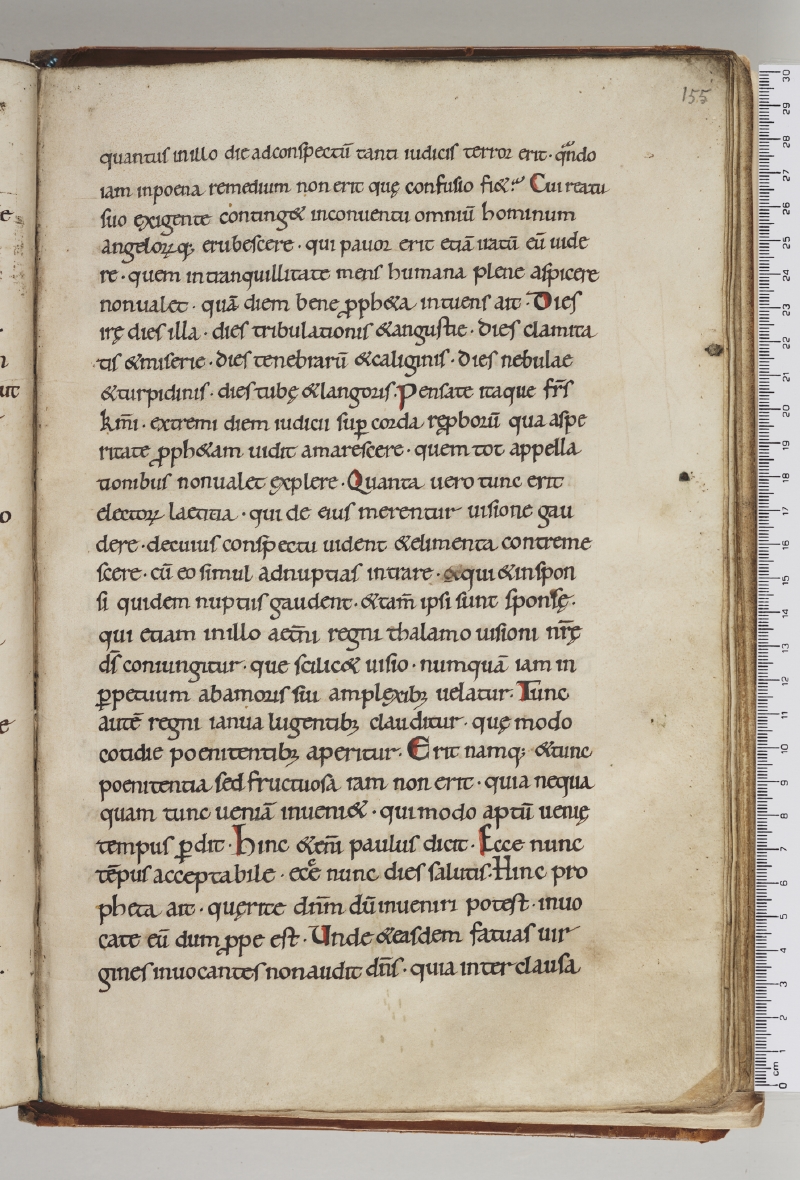 155
quantuſ in illo die ad conſpectū tanti iudiciſ terror erit · qͣndo
iam in poena remedium non erit quę confuſio fi&? Cui reatu
ſuo exigente conting& in conuentu omniū hominum
angeloꝝq; erubeſcere · qui pauor erit etiā iratū eū uide
re · quem in tranquillitate menſ humana plene aſpicere
non ualet · quā diem bene ꝓph&a intuenſ ait · Dieſ
irę dieſ illa · dieſ tribulationiſ & anguſtie · dieſ clamita
tiſ & miſerie · dieſ tenebrarū & caliginiſ · dieſ nebulae
& turpidiniſ · dieſ tubę & langoriſ. Penſate itaque fr̄ſ
km̄i · extremi diem iudicii ſuꝑ corda ręꝓborū qua aſpe
ritate ꝓph&am uidit amareſcere · quem tot appella
tionibuſ non ualet explere · Quanta uero tunc erit
electoꝝ laetitia · qui de eiuſ merentur uiſione gau
dere · de cuiuſ conſpectu uident & elimenta contreme
ſcere · cū eo ſimul ad nuptiaſ intrare · & qui & in ſpon
ſi quidem nuptiiſ gaudent · & tam̄ ipſi ſunt ſponſę ·
qui etiam in illo aet̄ni regni thalamo uiſioni nr̄ę
dī coniungitur · que ſcilic& uiſio · numquā iam in
ꝑpetuum ab amoriſ ſui amplexibꝫ uelatur · Tunc
autē regni ianua lugentibꝫ clauditur · quę modo
cotidie poenitentibꝫ aperitur · Erit namq; & tunc
poenitentia ſed fructuoſa iam non erit · quia nequa
quam tunc ueniā inueni& · qui modo aptū uenię
tempuſ ꝑdit · Hinc &em̄ pauluſ dicit · Ecce nunc
tēpuſ acceptabile · ecͨe nunc dieſ ſalutiſ. Hinc pro
pheta ait · quęrite dnm̄ dū inueniri poteſt · inuo
cate eū dum ꝓpe eſt · Unde & eaſdem fatuaſ uir
gineſ inuocanteſ non audit dn̄ſ · quia inter clauſa